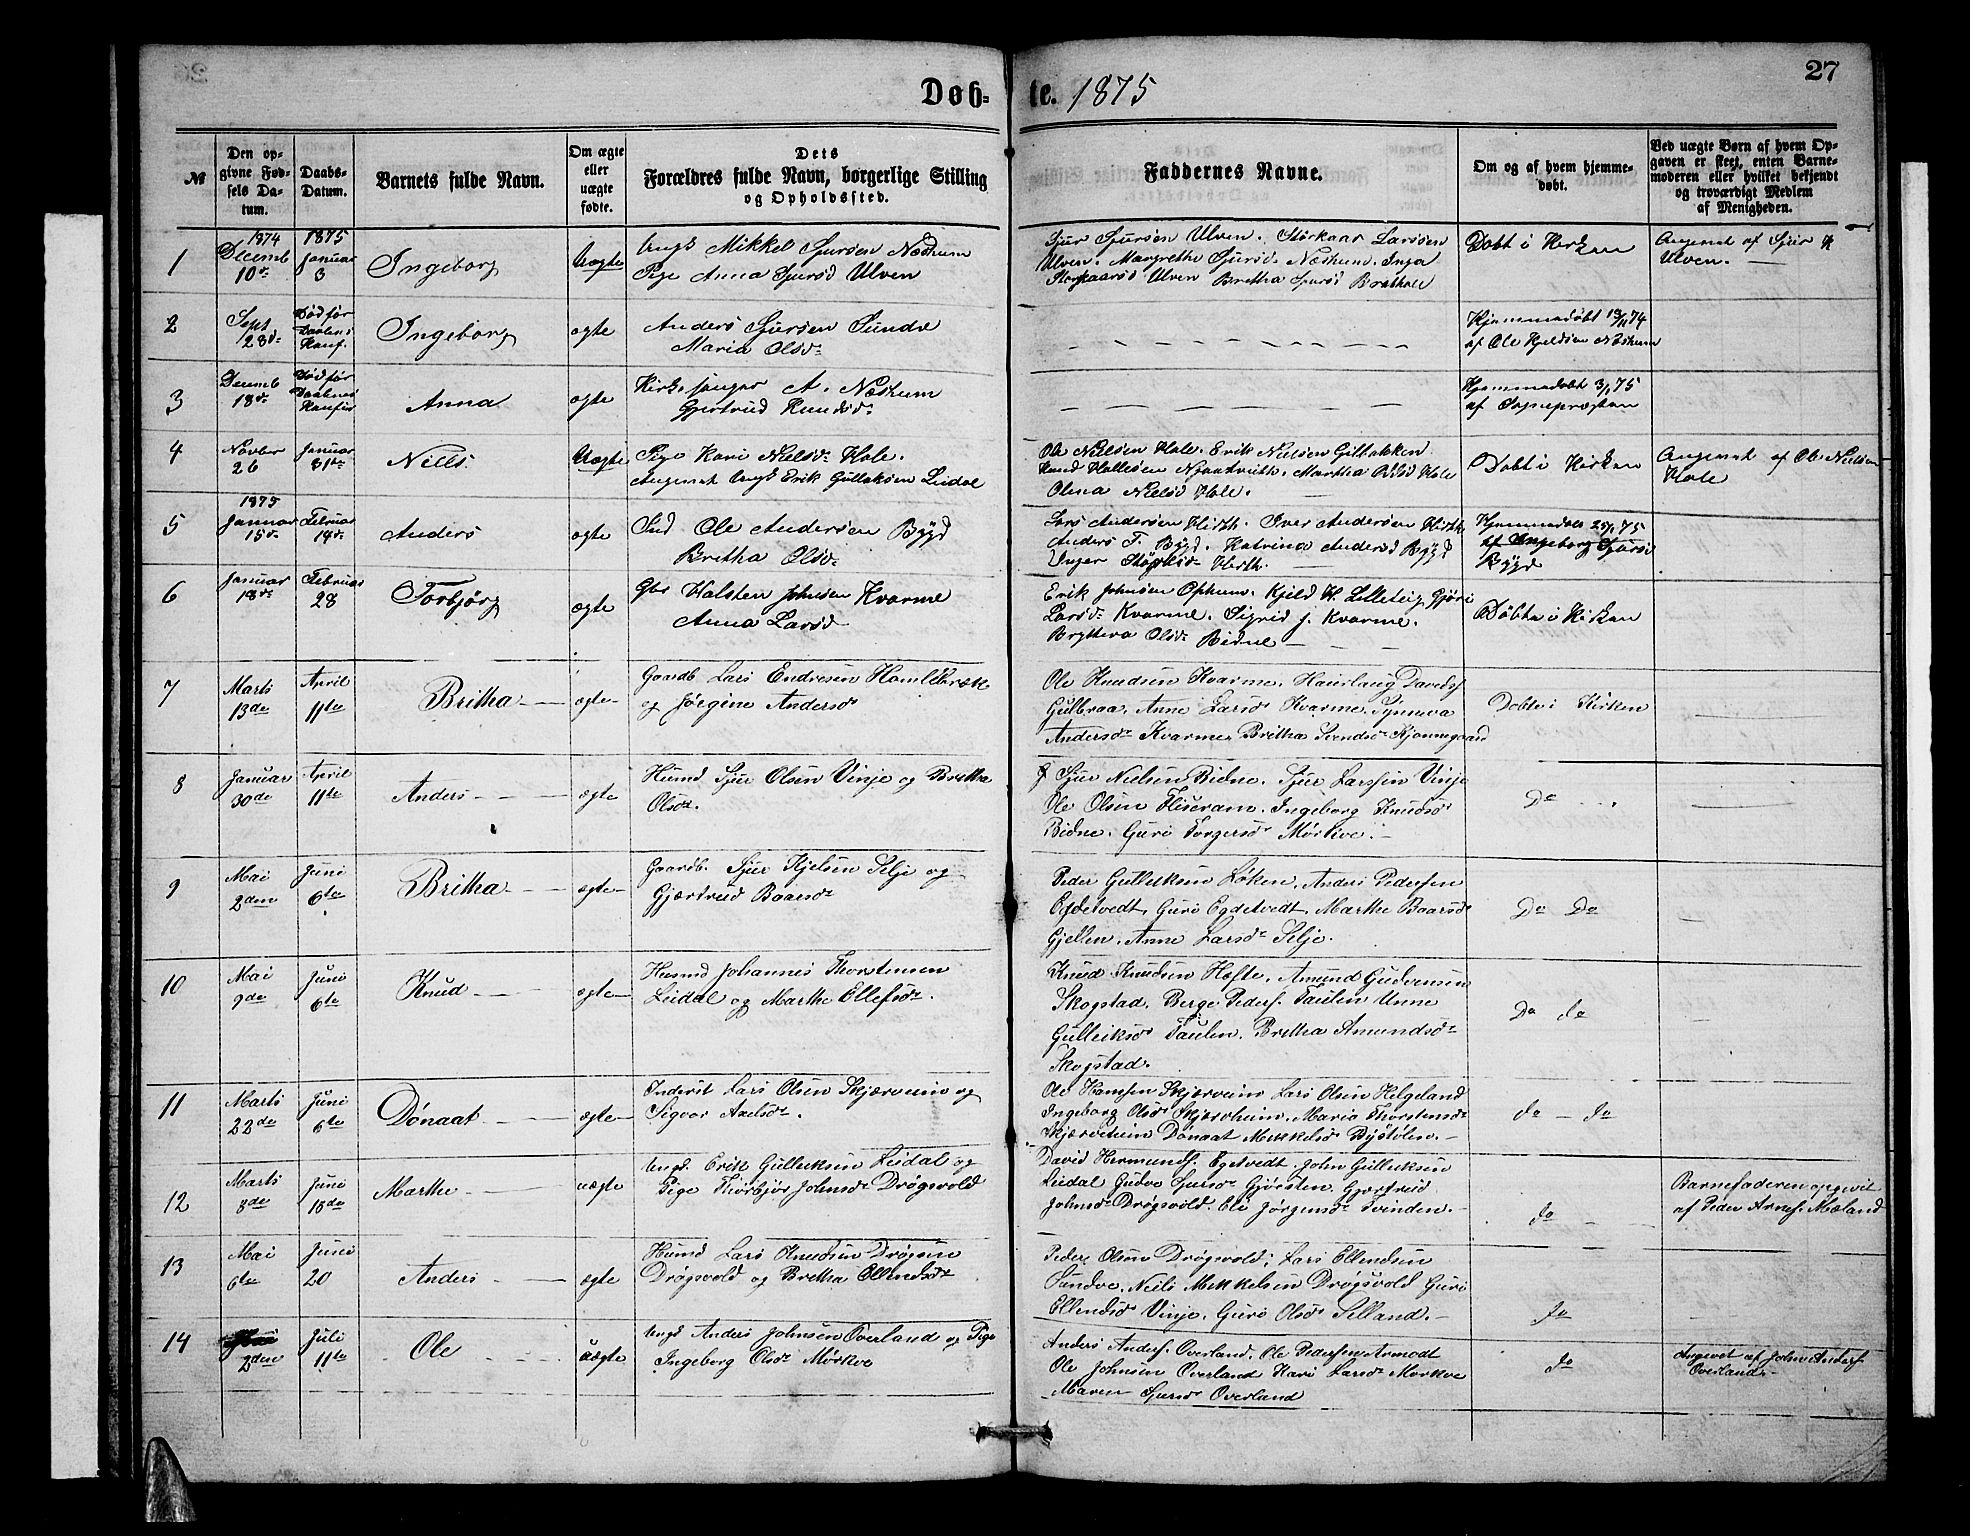 27
Døb=
te. 1875
№
Den op=
givne Fød=
sels Da=
tum.
Daabs=
Datum.
Barnets fulde Navn.
Om ægte
eller
uægte
fødte.
Dets
Forældres fulde Navn, borgerlige Stilling
og Opholdssted.
Faddernes Navne.
Om og af hvem hjemme=
døbt.
Ved uægte Børn af hvem Op=
gaven er skeet, enten Barne=
moderen eller hvilket bekjendt
og troværdigt Medlem
af Menigheden.
1
1874
Decemb
10de
1875
Januar
3
Ingeborg
Uægte
Ungk Mikkel Sjursen Næshum
Pige Anna Sjursd Ulven
Sjur Sjursen Ulven. Storkaar Larsen
Ulven. Margrethe Sjursd. Næshum. Inga
Storkaarsd Ulven Bretha Sjursd
Døbt i Kirken
Angivet af Sjur
Ulven.
2
Sept
28de
Død før
Daabens
Ingeborg
ægte
Anders Sjursen Sundve
Maria Olsd.
Hjemmedøbt 13/11 74
af Ole Kjeldsen Næshum
3
Decemb
18de
Død før
Daabens
Anna
ægte
Kirkesanger A. Næshum
Gjertrud Knudsd.
Hjemmedøbt 3/1 75
af Sognepræsten
4
Novber
26
Januar
31te
Niels
Uægte
Pige Kari Nielsd. Hole.
Angivet Ungk Erik Gulleksen Leidal
Ole Nielsen Hole. Erik Nielsen
Knud Martha Hole
Olina Nielsd Hole.
Døbt i Kirken
Angivet af Ole Nielsen
Hole
5
1875
Januar
15de
Februar
14de
Anders
ægte
Ind Ole Andersen Bygd
Bretha Olsd.
Lars Andersen Hirth. Iver Andersen Hirth
Anders T. Bygd. Katrina Andersd Bygd
Hirth.
Hjemmedøb 25/1 75
af Ingeborg Sjursd
Bygd
6
Januar
18de
Februar
28
Torbjørg
ægte
Gbr Halsten Johnsen Kvarme
Anna Larsd
Erik Johnsen Ophum. Kjeld H. Lilleteig Gjøri
Larsd. Kvarme. Sigrid J. Kvarme.
Brytteva Olsd. Bidne
Døbte i Kirken
7
Marts
13de
April
11te
Britha
ægte
Gaardb. Lars Endresen Hamlebræk
og Jørgine Andersd
Ole Knudsen Kvarme. Haurlaug Davids
Gulbraa. Anne Larsd Kvarme. Synneva
Andersdr Kvarme Britha Svendsd Kjønnegaard
Døbte i Kirken
8
Januar
30de
April
11te
Anders
ægte
Husmd Sjur Olsen Vinje og Bretha
Olsdr.
Sjur Nielsen Bidne. Sjur Larssen Vinje
Ole Olsen Fliseram. Ingeborg Knudsd
Bidne. Guro Torgersd Mørkve.
Do
9
Mai
2den
Juni
6te
Britha
ægte
Gaardb. Sjur Kjelsen Selje og
Gjærtrud Baarsdr
Peder Gulleksen Løken. Anders Pedersen
Egdetvedt. Guro Egdetvedt. Marthe Baarsd
Gjellen. Anne Larsdr Selje.
Do Do
10
Mai
9de
Juni
6te
Knud
ægte
Husmd Johannes Thorstensen
Leidal og Marthe Ellefsdr.
Knud Knudsen Hæfte. Amund Gudvensen
Skogstad. Berge Peders. Taulen Unne
Gulleiksd Taulen. Bretha Amundsdr
Skogstad.
Do do
11
Marts
22de
Juni
6te
Dønaat
ægte
Inderst Lars Olsen Skjærveim og
Sigvor Axelsdr.
Ole Hansen Skjærveim Lars Olsen Helgeland
Ingeborg Olsdr Skjærvheim. Maria Thorstensdr
Skjærveheim Dønaat Mikkelsd Bystølen.
do do
12
Marts
8de
Juni
13de
Marthe
uægte
Ungk. Erik Gulleksen Leidal og
Pige Thorbjør Johnsdr Drøgsvold
David Hermunds. Egetvedt. John Gulleksen
Leidal Gudve Sjursdr Gjørsten. Gjærtrud
Johnsd Drøgsvold. Eli Jørgensdr Tvinden.
do
Barnefaderen opgivet
af Peder Arnes. Mæland
13
Mai
6te
Juni
20
Anders
ægte
Husmd Lars Knudsen
Drøgsvold og Bretha Ellendsdr
Peder Olsen Drøgsvold. Lars Ellendsen
Sundve. Niels Mikkelsen Drøgsvold Guro
Ellendsdr Vinje. Guro Olsdr Selland.
do
14
2den
Juli
11te
Ole
uægte
Ungk Anders Johnsen Overland og Pige
Ingeborg Olsdr Mørkve
Anders Anders. Overland. Ole Pedersen Armodt
Ole Johnsen Overland Kari Larsdr Mørkve
Maren Sjursdr Overland
do
Angivet af John Anders.
Overland.